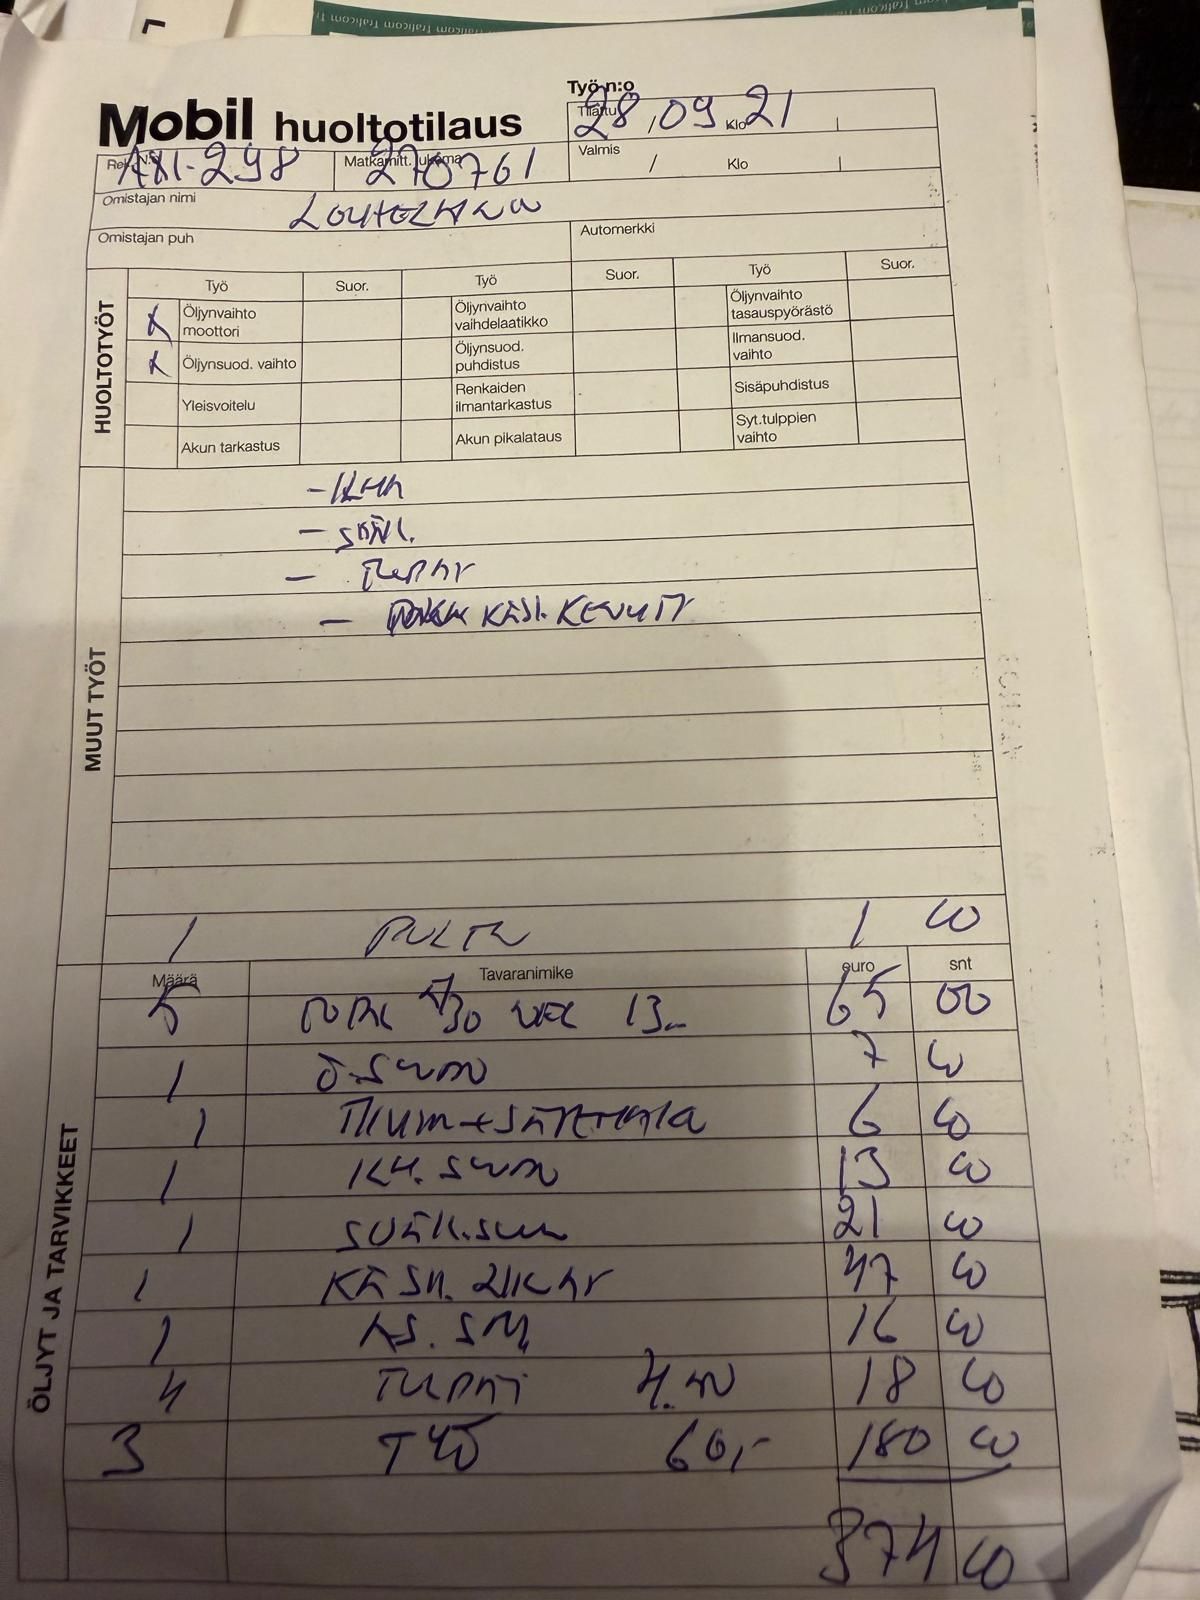 Työ n:o
Mobil huoltotilaus
Tilattu 28 / 09 Klo 21
Rek. N:o AXI-298 Matkamitt. lukema 270761
Valmis / Klo
Omistajan nimi
Omistajan puh Automerkki
HUOLTOTYÖT
Työ Suor. Työ Suor. Työ Suor.
x Öljynvaihto moottori Öljynvaihto vaihdelaatikko Öljynvaihto tasauspyörästö
x Öljynsuod. vaihto Öljynsuod. puhdistus Ilmansuod. vaihto
Yleisvoitelu Renkaiden ilmantarkastus Sisäpuhdistus
Akun tarkastus Akun pikalataus Syt.tulppien vaihto
MUUT TYÖT
-
-
- TULPAT
- KÄSI. KEVYT
1 1 00
ÖLJYT JA TARVIKKEET
Määrä Tavaranimike euro snt
5 5/30 13.- 65 00
1 Ö.SUOD 7 00
1 6 00
1 SUOD 13 00
1 21 00
1 47 00
1 16 00
4 TULPAT 4.50 18 00
3 TYÖ 60,- 180 00
374 00
Traficom Traficom Traficom